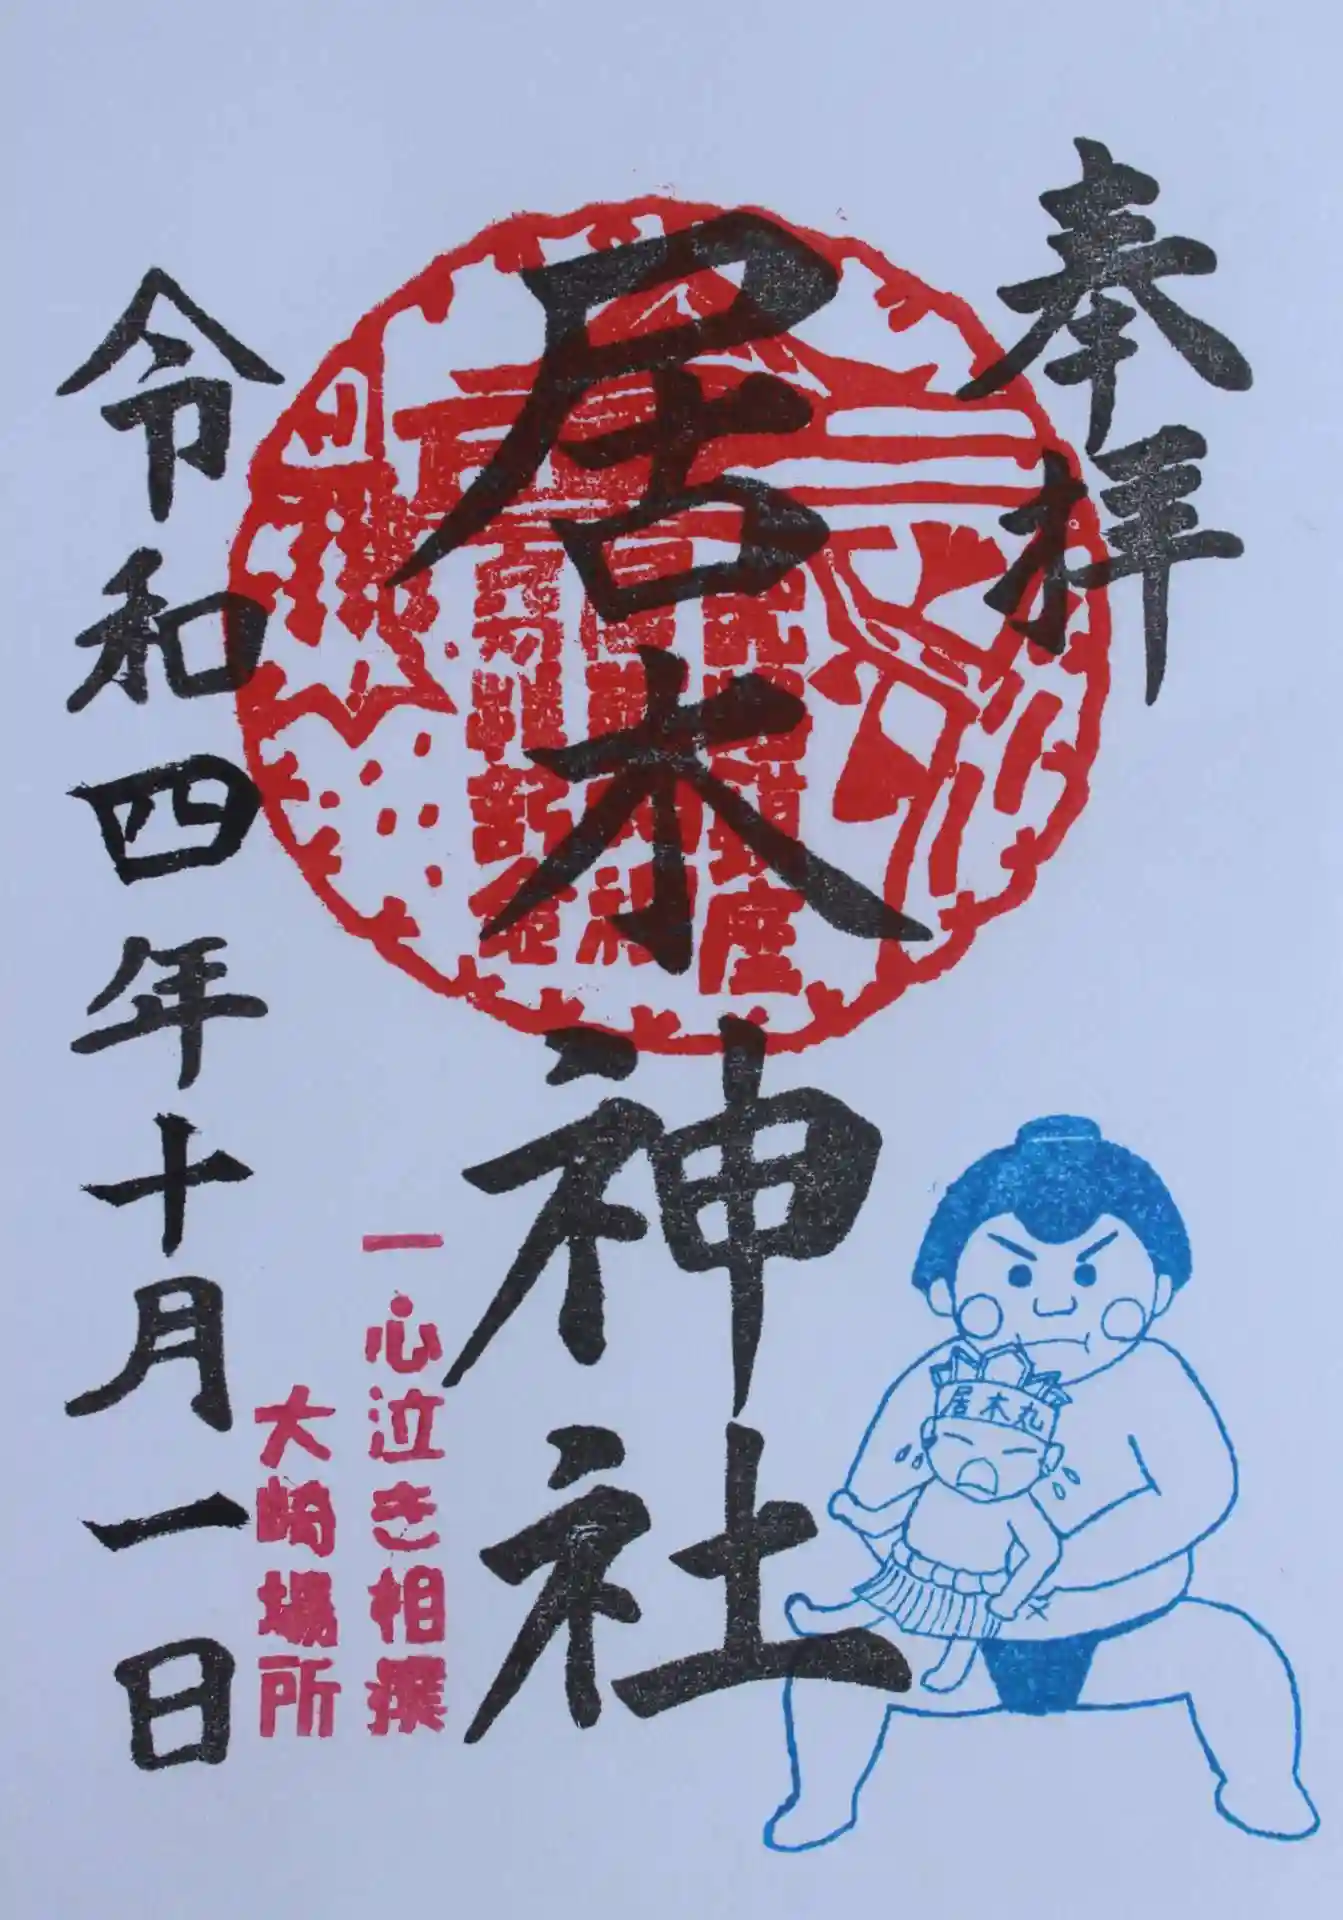 奉拝
居木神社
一心泣き相撲
大崎場所
令和四年十月一日
居木丸
鎮座